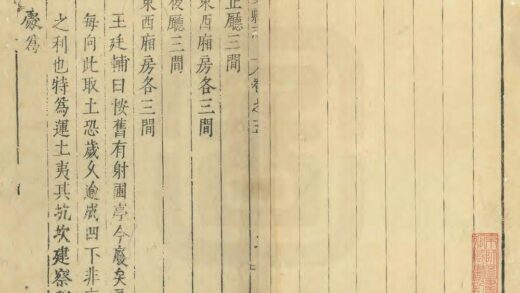 卷之
正廳三間
東西廂房各三間
後廳三間
東西廂房各三間
王廷輔曰按舊有射圃亭今廢矣
每向此取土恐歲久逾成凹下非
之利也特爲運土夷其坑坎建察
廢爲